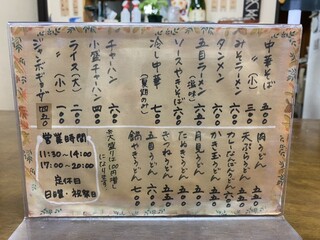 中華そば 五〇〇
〃 (小)
みそラーメン
タンメン 六〇〇
五目ラーメン (塩味) 六五〇
ソースやきそば 六〇〇
冷し中華 (夏期のみ) 七〇〇
チャーハン 六〇〇
小盛チャーハン 四〇〇
ライス (大)
〃 (小) 一〇〇
ジャンボギョーザ 四五〇
肉うどん 五五〇
天ぷらうどん 五五〇
カレーなんばんうどん
かき玉うどん 五五〇
月見うどん
たぬきうどん
きつねうどん
五目うどん 六〇〇
鍋やきうどん 七〇〇
大盛りは100円増し
になります
営業時間
11:30~14:00
17:00~20:00
定休日
日曜・祝祭日